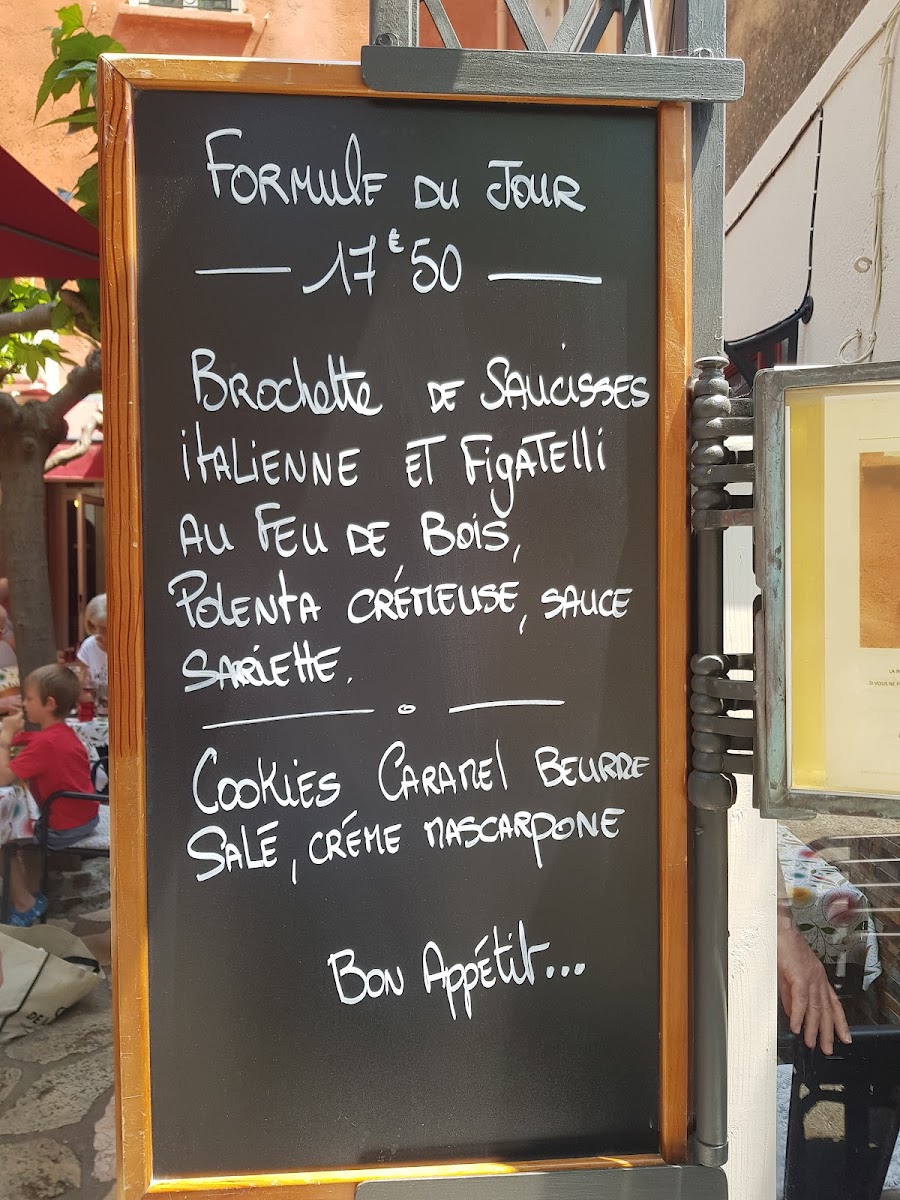 Formule du Jour
17€50
Brochette de Saucisses
italienne et Figatelli
au Feu de Bois,
Polenta crémeuse, sauce
Sarriette.
Cookies Caramel Beurre
Salé, crème mascarpone
Bon Appétit...